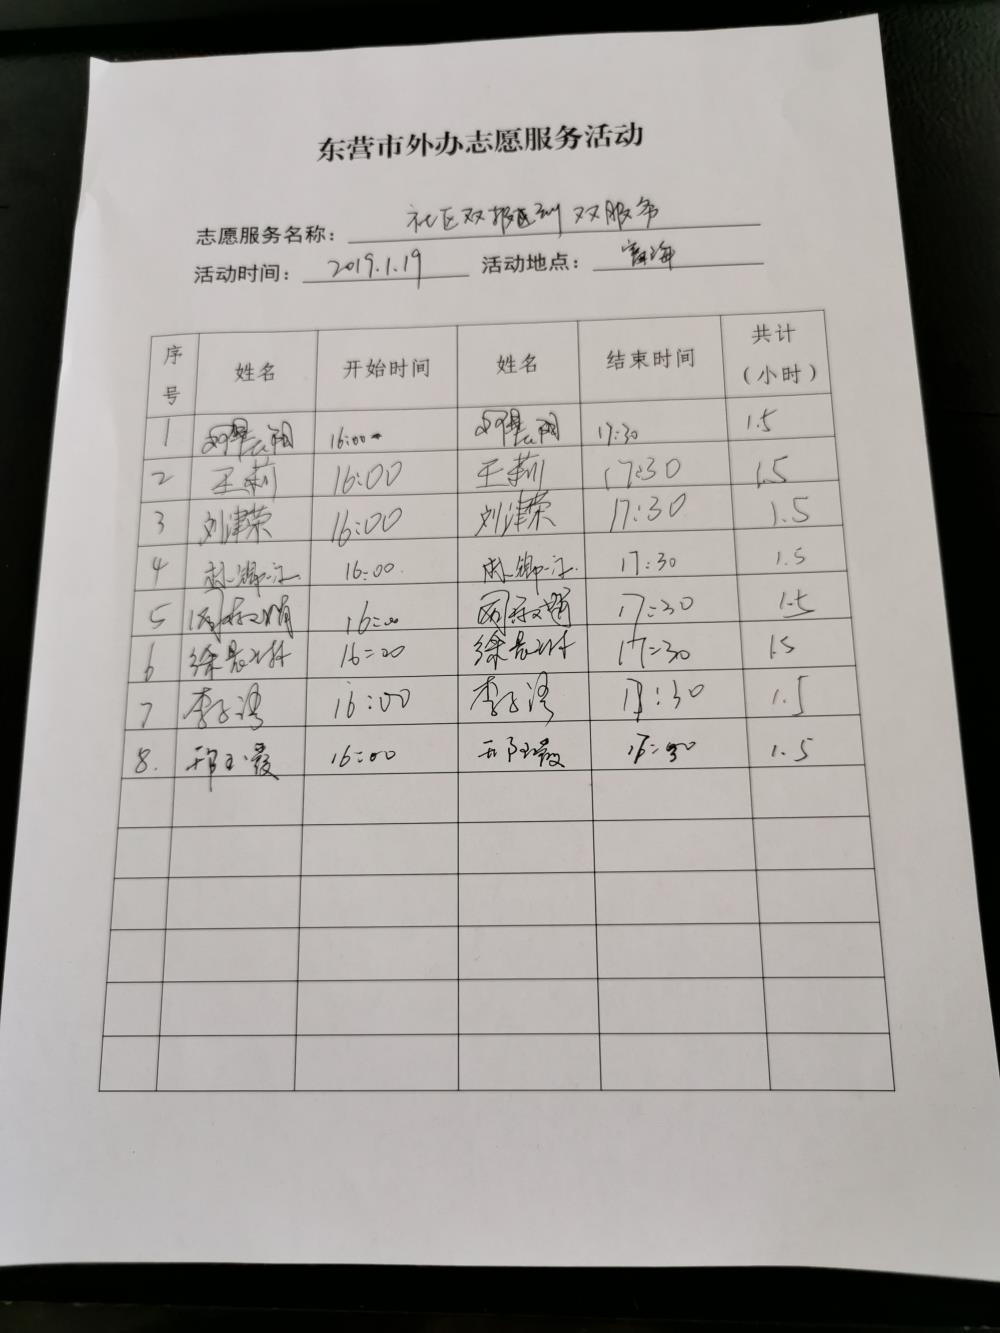 东营市外办志愿服务活动
志愿服务名称： 社区双报到 双服务
活动时间： 2019.1.19 活动地点：
序号 姓名 开始时间 姓名 结束时间 共计（小时）
1 16:00 17:30 1.5
2 王莉 16:00 王莉 17:30 1.5
3 刘津荣 16:00 刘津荣 17:30 1.5
4 16:00. 17:30 1.5
5 16:00 17:30 1.5
6 16:00 17:30 1.5
7 李子涛 16:00 李子涛 17:30 1.5
8. 邢玉霞 16:00 邢玉霞 1.5